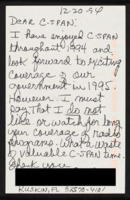 12-20-94
DEAR C-SPAN,
I have enjoyed C-SPAN
throughout 1994 and
look forward to exciting
coverage of our
government in 1995.
However I must
say that I do not
like or watch for long
your coverage of radio
programs. What a waste
of valuable C-SPAN time.
Thank you
RUSKIN, FL 33570-